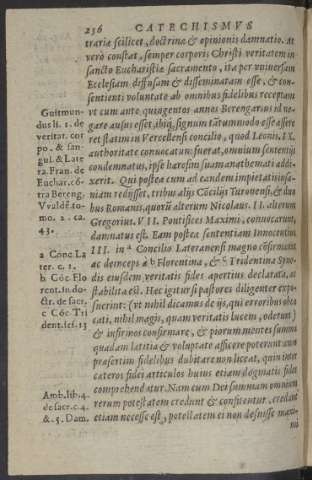 236 CATECHISMVS
trariæ scilicet, doctrinæ & opinionis damnatio. At
verò constat, semper corporis Christi veritatem in
sancto Eucharistiæ sacramento, ita per vniuersam
Ecclesiam diffusam & disseminatam esse, & con-
sentienti voluntate ab omnibus fidelibus receptam
vt cum ante quingentos annos Berengarius id ne-
gare ausus esset, ibiq; signum tātummodo esse assere
ret statim in Vercellensi concilio, quod Leonis. IX.
authoritate conuocatum fuerat, omnium sententijs
condemnatus, ipse hæresim suam anathemati addi-
xerit. Qui postea cum ad eandem impietatis insa-
niam redijsset, tribus alijs Cōcilijs Turonensi, & duo
bus Romanis, quorū alterum Nicolaus. II. alterum
Gregorius. VII. Pontifices Maximi, conuocarunt,
damnatus est. Eam postea sententiam Innocentius
III. in a Concilio Lateranensi magno cōfirmauit
ac deinceps à b Florentina, & c Tridentina Syno-
dis eiusdem veritatis fides apertius declarata, &
stabilita est. Hec igitur si pastores diligenter expo-
suerint: (vt nihil dicamus de ijs, qui erroribus obcę
cati, nihil magis, quàm veritatis lucem, oderunt)
& infirmos confirmare, & piorum mentes summa
quadam lætitia & voluptate afficere poterunt
præsertim fidelibus dubitare non liceat, quin inter
cæteros fidei articulos huius etiam dogmatis fides
comprehendatur. Nam cum Dei summam omnium
rerum potestatem credunt & confitentur, credant
etiam necesse est, potestatem ei non defuisse maxi-
mi
Guitmun-
dus li. 1. de
veritat. cor
po. & san-
gui. & Late
ra. Fran. de
Euchar. cō-
tra Bereng.
Vvaldē. to-
mo. 2. ca.
43.
a Conc. La
ter. c. 1.
b Cōc. Flo
rent. in do-
ctr. de sacr.
c Cōc. Tri
dent. ses. 13
Amb. lib. 4.
de sacr. c. 4.
& .5. Dam.